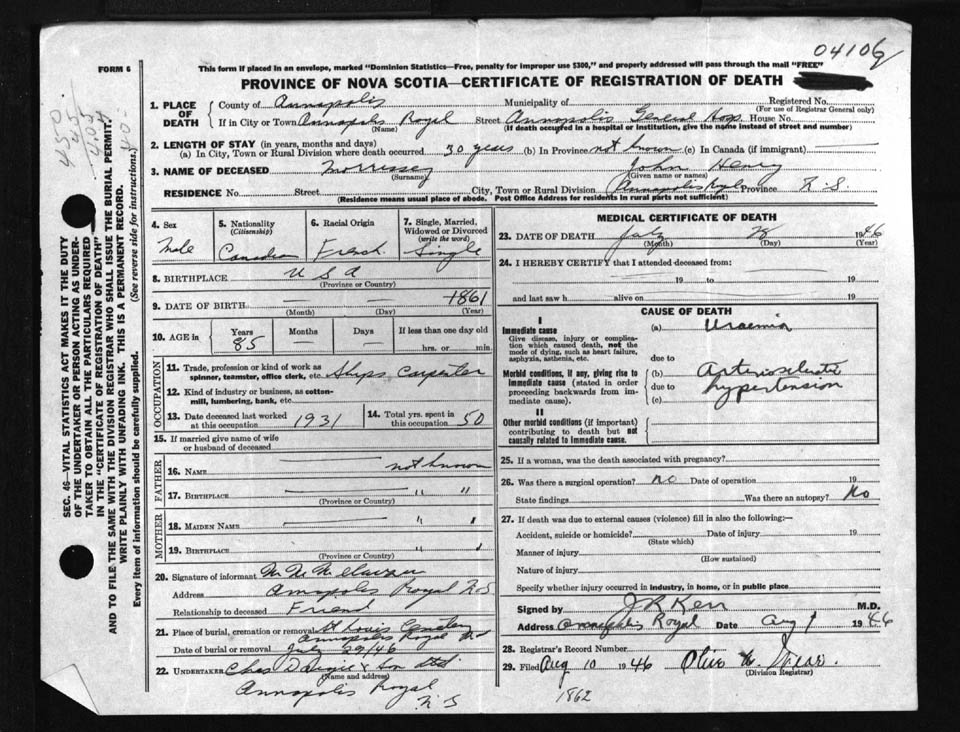 04106
FORM 6
This form if placed in an envelope, marked "Dominion Statistics—Free, penalty for improper use $300," and properly addressed will pass through the mail "FREE"
PROVINCE OF NOVA SCOTIA—CERTIFICATE OF REGISTRATION OF DEATH
1. PLACE OF DEATH
County of Annapolis Municipality of Registered No.
(For use of Registrar General only)
If in City or Town Annapolis Royal Street Annapolis General Hosp. House No.
(Name) (If death occurred in a hospital or institution, give the name instead of street and number)
2. LENGTH OF STAY (in years, months and days)
(a) In City, Town or Rural Division where death occurred 30 years (b) In Province not known (c) In Canada (if immigrant)
3. NAME OF DECEASED Morrissey John Henry
(Surname) (Given name or names)
RESIDENCE No. Street City, Town or Rural Division Annapolis Royal Province N.S.
(Residence means usual place of abode. Post Office Address for residents in rural parts not sufficient)
4. Sex
Male
5. Nationality
(Citizenship)
Canadian
6. Racial Origin
French
7. Single, Married, Widowed or Divorced
(write the word)
Single
8. BIRTHPLACE U S A
(Province or Country)
9. DATE OF BIRTH — — 1861
(Month) (Day) (Year)
10. AGE in
Years Months Days If less than one day old
85 hrs. or min.
OCCUPATION
11. Trade, profession or kind of work as spinner, teamster, office clerk, etc. Ships Carpenter
12. Kind of industry or business, as cotton-mill, lumbering, bank, etc.
13. Date deceased last worked at this occupation 1931
14. Total yrs. spent in this occupation 50
15. If married give name of wife or husband of deceased
FATHER
16. NAME not known
17. BIRTHPLACE " "
(Province or Country)
MOTHER
18. MAIDEN NAME " "
19. BIRTHPLACE " "
(Province or Country)
20. Signature of informant
Address Annapolis Royal N.S.
Relationship to deceased Friend
21. Place of burial, cremation or removal St Louis Cemetery
Annapolis Royal N.S.
Date of burial or removal July 29/46
22. UNDERTAKER Chas & Son Ltd
(Name and address)
Annapolis Royal
N S
MEDICAL CERTIFICATE OF DEATH
23. DATE OF DEATH July 28 1946
(Month) (Day) (Year)
24. I HEREBY CERTIFY that I attended deceased from:
19 to 19
and last saw h alive on 19
CAUSE OF DEATH
I
Immediate cause (a) Uraemia
Give disease, injury or complication which caused death, not the mode of dying, such as heart failure, asphyxia, asthenia, etc.
due to
Morbid conditions, if any, giving rise to immediate cause (stated in order proceeding backwards from immediate cause).
(b) Arteriosclerotic
due to hypertension
(c)
II
Other morbid conditions (if important) contributing to death but not causally related to immediate cause.
25. If a woman, was the death associated with pregnancy?
26. Was there a surgical operation? no Date of operation 19
State findings Was there an autopsy? No
27. If death was due to external causes (violence) fill in also the following:—
Accident, suicide or homicide? Date of injury 19
(State which)
Manner of injury
(How sustained)
Nature of injury
Specify whether injury occurred in industry, in home, or in public place
Signed by J R Kerr M.D.
Address Annapolis Royal Date Aug 1 1946
28. Registrar's Record Number
29. Filed Aug 10 1946
(Division Registrar)
1862
SEC. 46—VITAL STATISTICS ACT MAKES IT THE DUTY
OF THE UNDERTAKER OR PERSON ACTING AS UNDER-
TAKER TO OBTAIN ALL THE PARTICULARS REQUIRED
IN THE "CERTIFICATE OF REGISTRATION OF DEATH"
AND TO FILE THE SAME WITH THE DIVISION REGISTRAR WHO SHALL ISSUE THE BURIAL PERMIT.
WRITE PLAINLY WITH UNFADING INK. THIS IS A PERMANENT RECORD.
Every item of information should be carefully supplied. (See reverse side for instructions.)